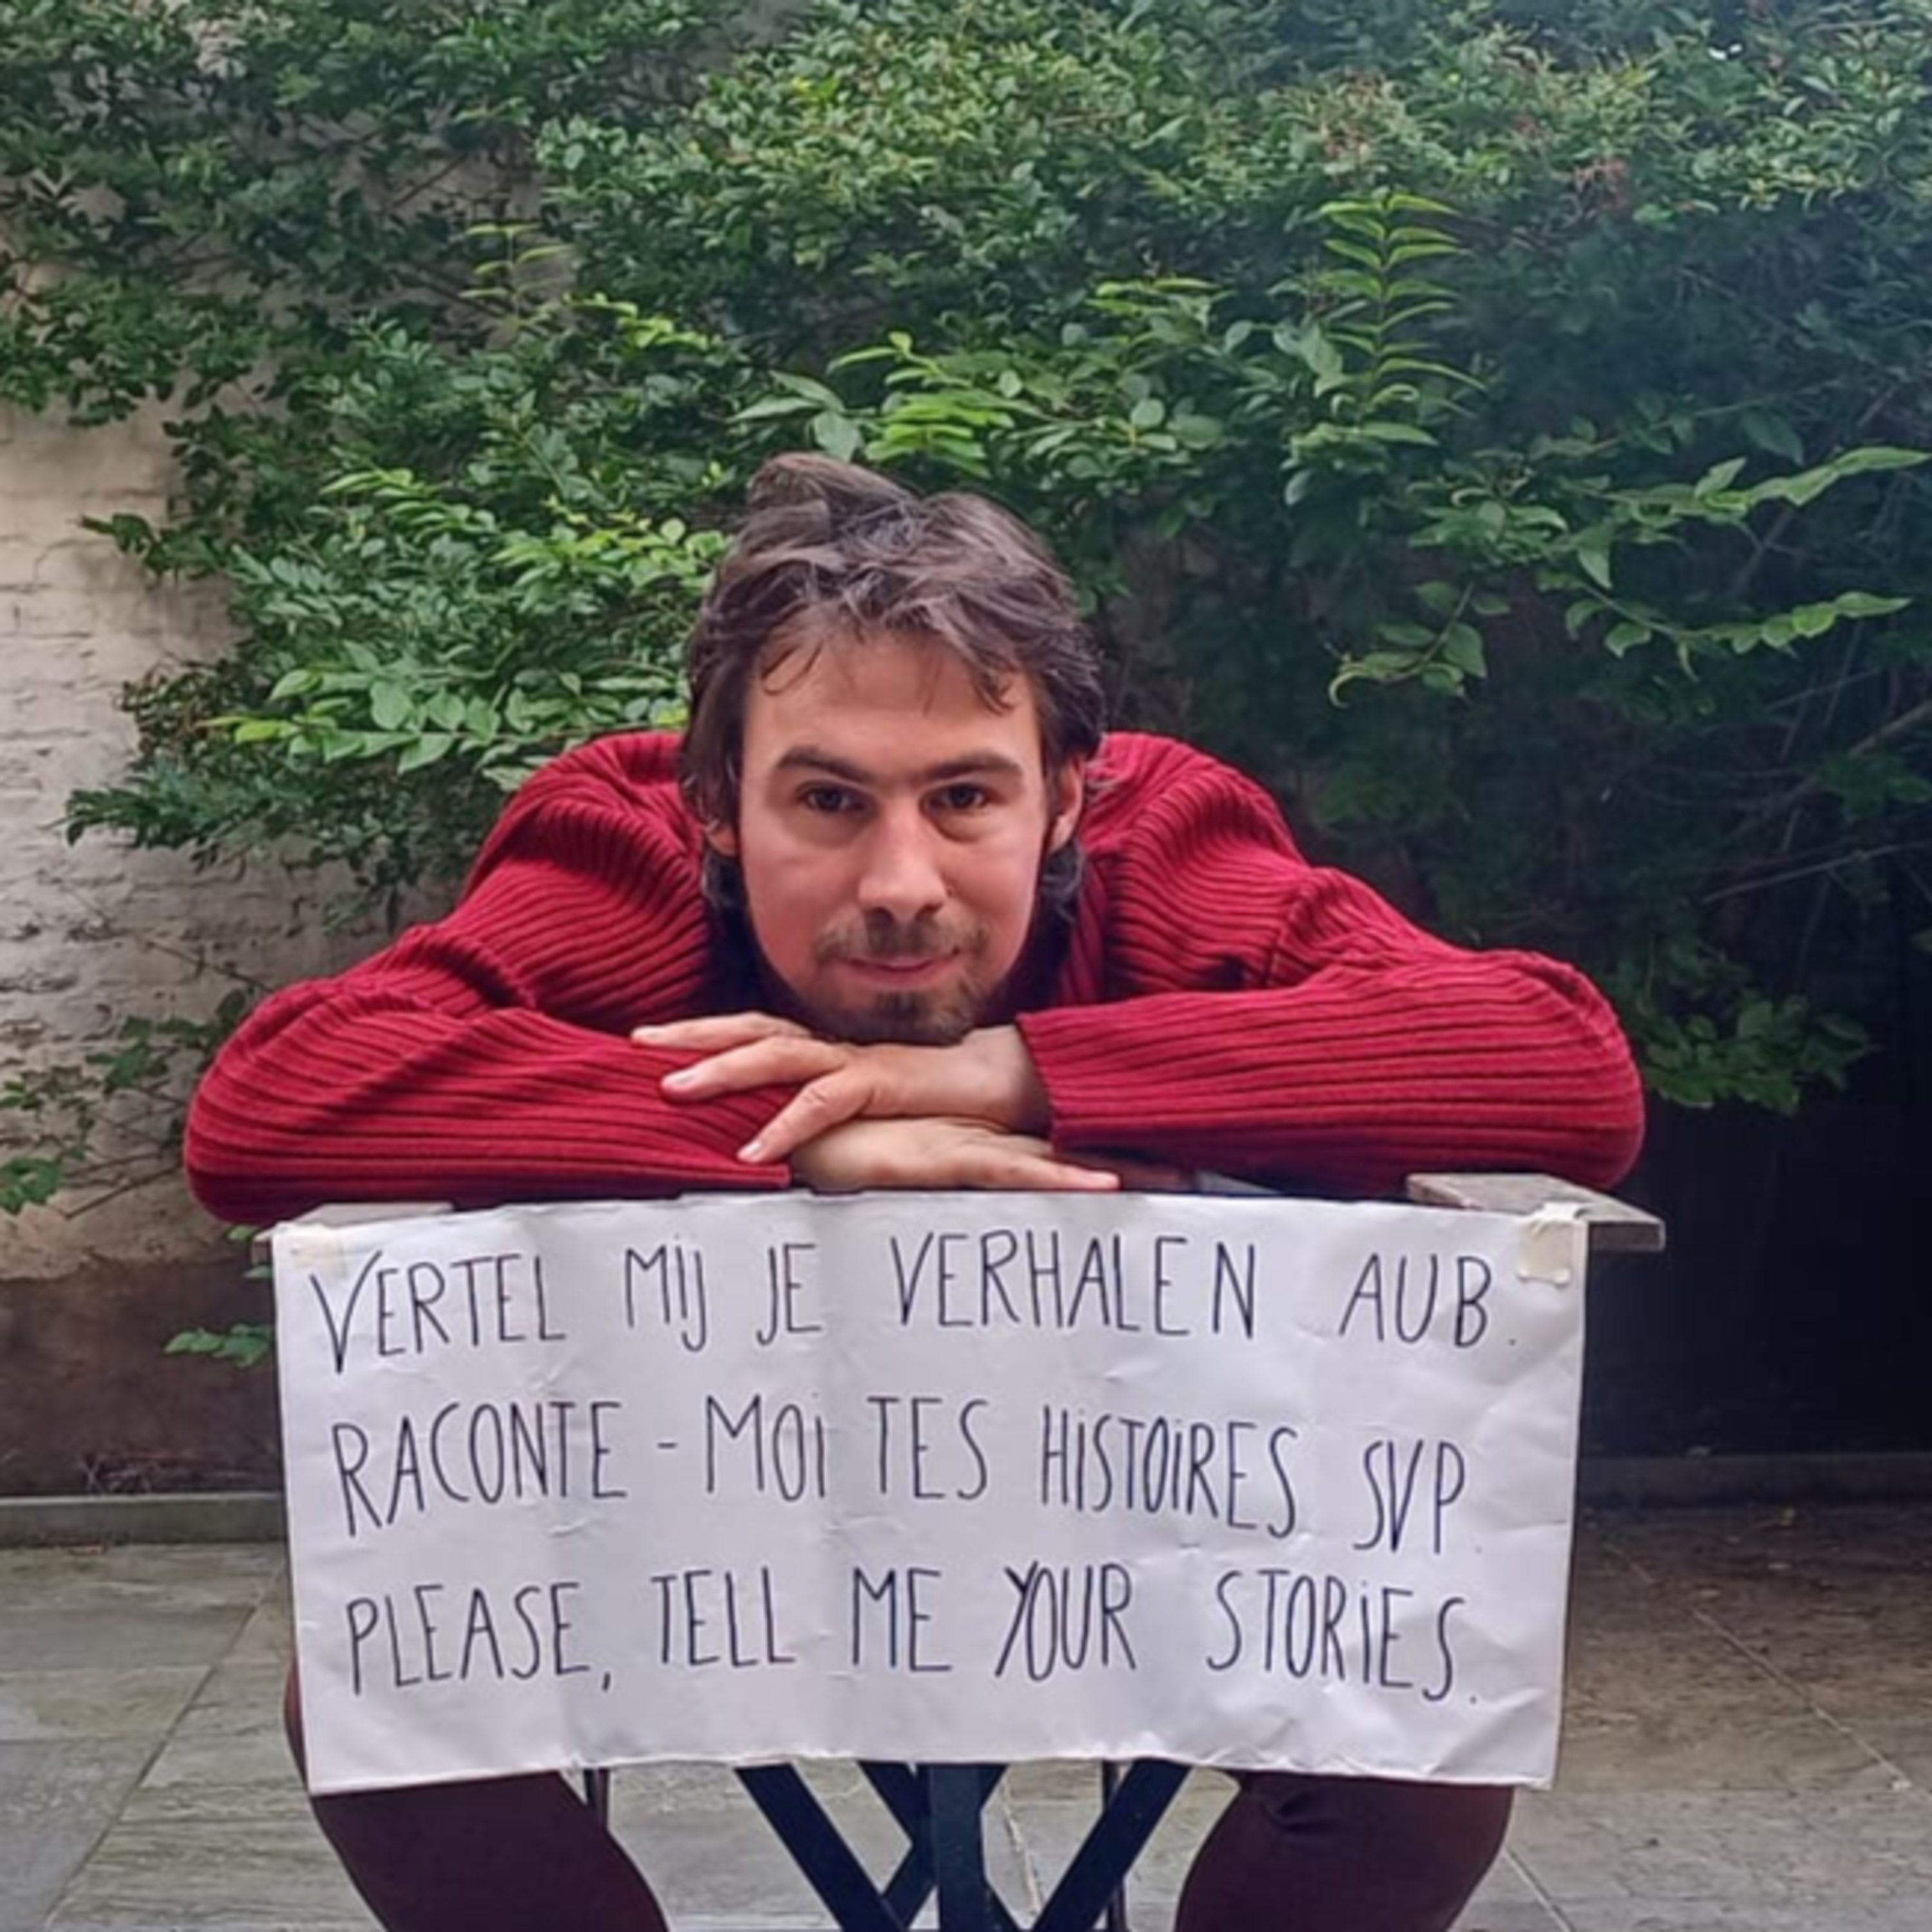 VERTEL MIJ JE VERHALEN AUB.
RACONTE-MOI TES HISTOIRES SVP.
PLEASE, TELL ME YOUR STORIES.